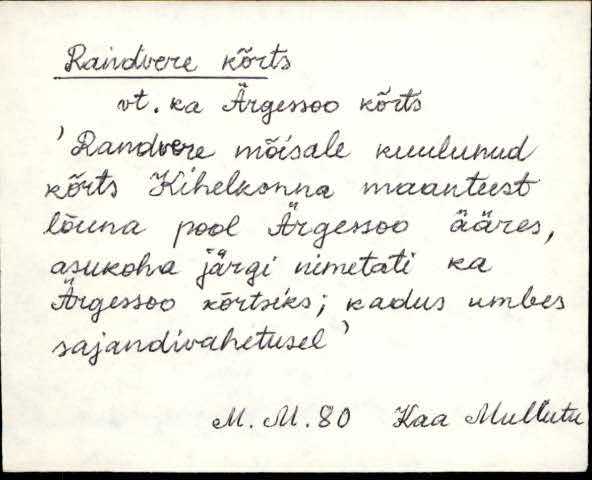 Randvere kõrts
vt. ka Ärgessoo kõrts
'Randvere mõisale kuulunud
kõrts Kihelkonna maanteest
lõuna pool Ärgessoo ääres,
asukoha järgi nimetati ka
Ärgessoo kõrtsiks; kadus umbes
sajandivahetusel'
M. M. 80 Kaa Mullutu